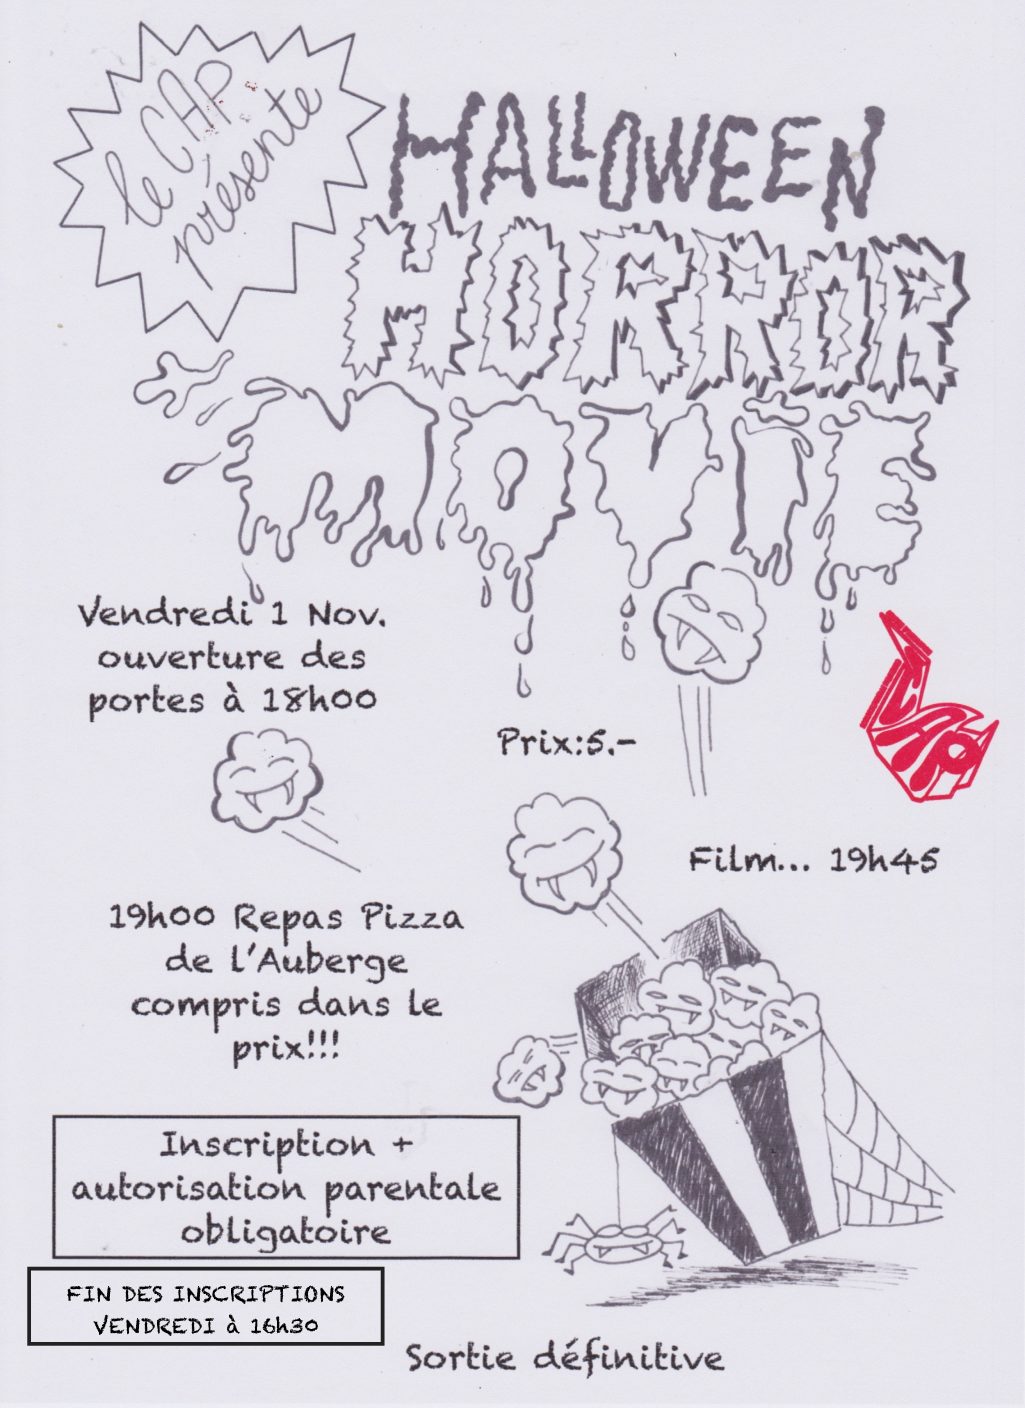 le CAP
présente
HALLOWEEN
HORROR
MOVIE
Vendredi 1 Nov.
ouverture des
portes à 18h00
Prix:5.-
CAP
Film... 19h45
19h00 Repas Pizza
de l'Auberge
compris dans le
prix!!!
Inscription +
autorisation parentale
obligatoire
FIN DES INSCRIPTIONS
VENDREDI à 16h30
Sortie définitive